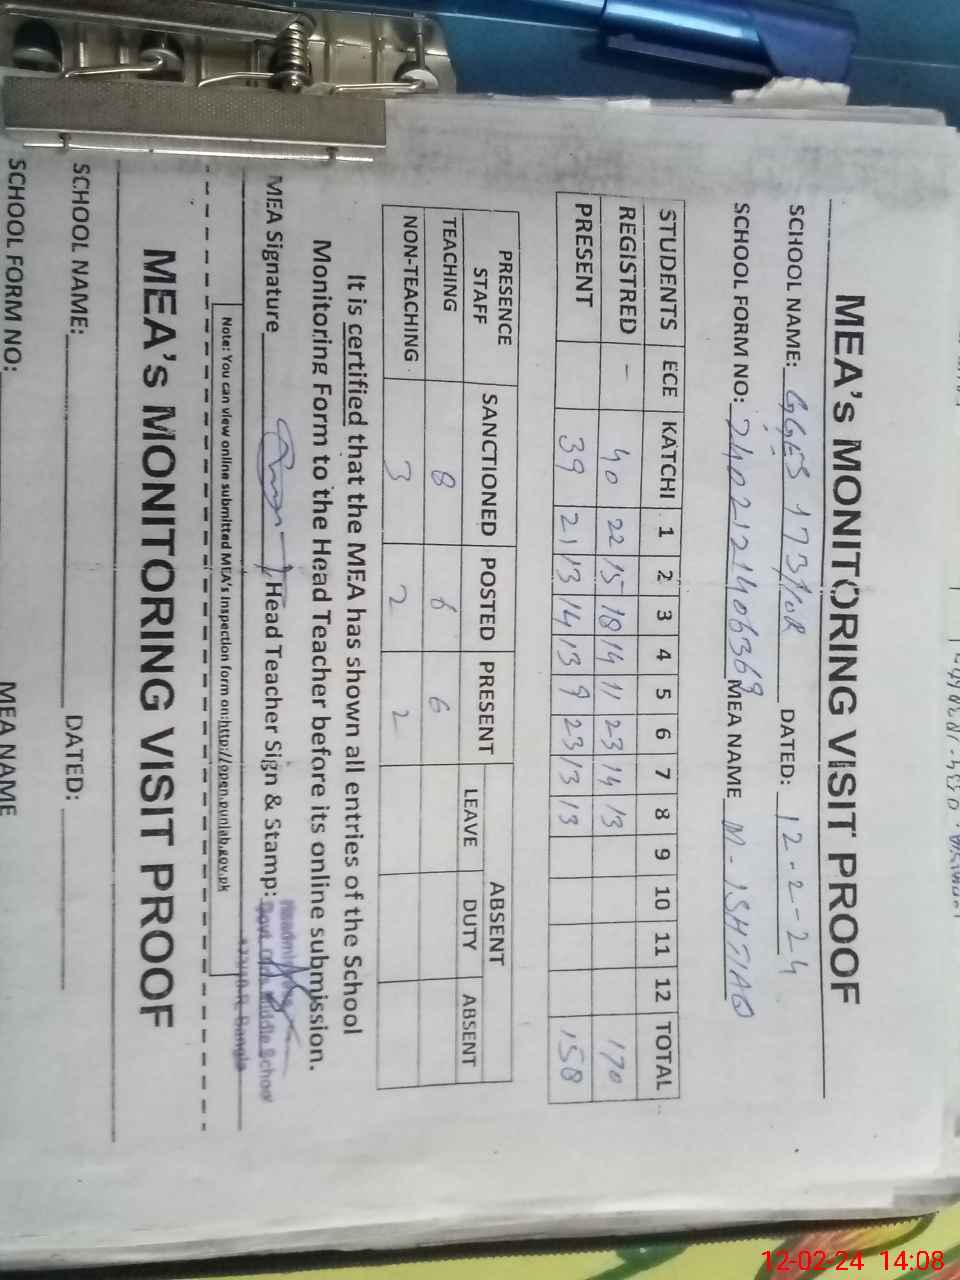 MEA's MONITORING VISIT PROOF
SCHOOL NAME: GGES 173/10R DATED: 12-2-24
SCHOOL FORM NO: 2402121406369 MEA NAME M-ISHTIAQ
STUDENTS ECE KATCHI 1 2 3 4 5 6 7 8 9 10 11 12 TOTAL
REGISTRED - 40 22 15 18 14 11 23 14 13 170
PRESENT 39 21 13 14 13 9 23 13 13 158
PRESENCE STAFF SANCTIONED POSTED PRESENT ABSENT
LEAVE DUTY ABSENT
TEACHING 8 6 6
NON-TEACHING 3 2 2
It is certified that the MEA has shown all entries of the School
Monitoring Form to the Head Teacher before its online submission.
MEA Signature Head Teacher Sign & Stamp:
Govt. Middle School
173/10-R
Note: You can view online submitted MEA's Inspection form on:http://open.punjab.gov.pk
MEA's MONITORING VISIT PROOF
SCHOOL NAME: DATED:
SCHOOL FORM NO: MEA NAME
12-02-24 14:08